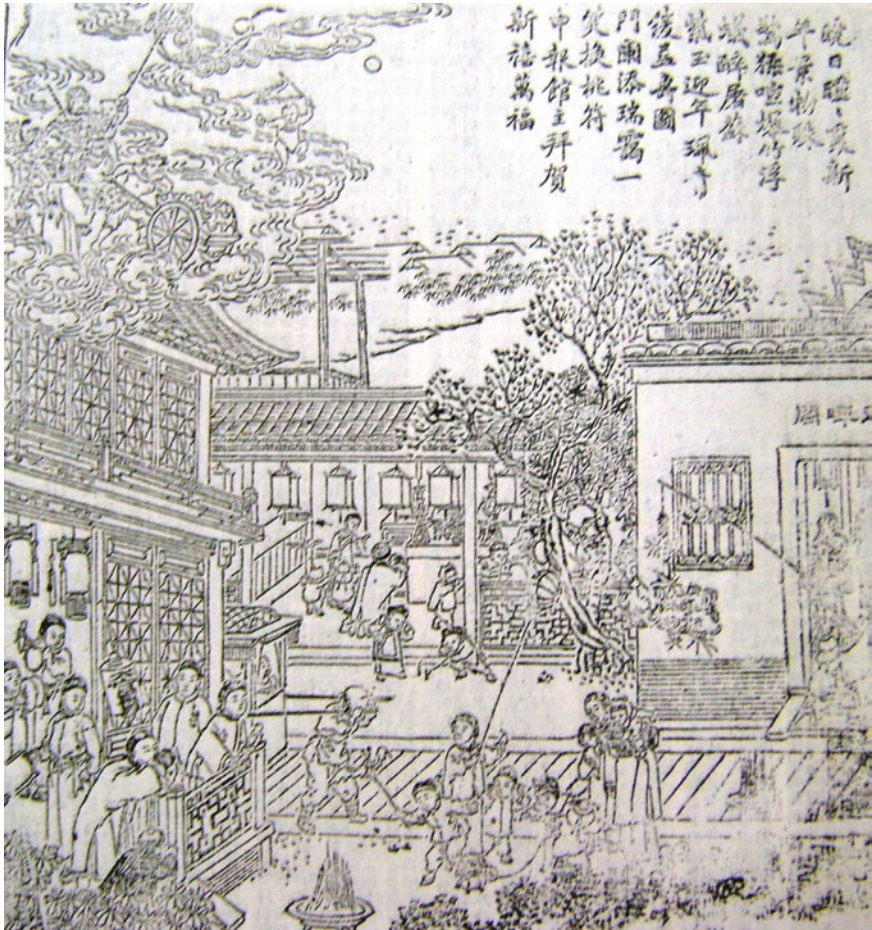 曉日曈〻裏新
年景物殊
驚猿喧爆竹浮
蟻醉屠蘇
紫玉迎年珮青
綾益壽圖
門闌添瑞靄一
笑換桃符
申報館主拜賀
新禧萬福